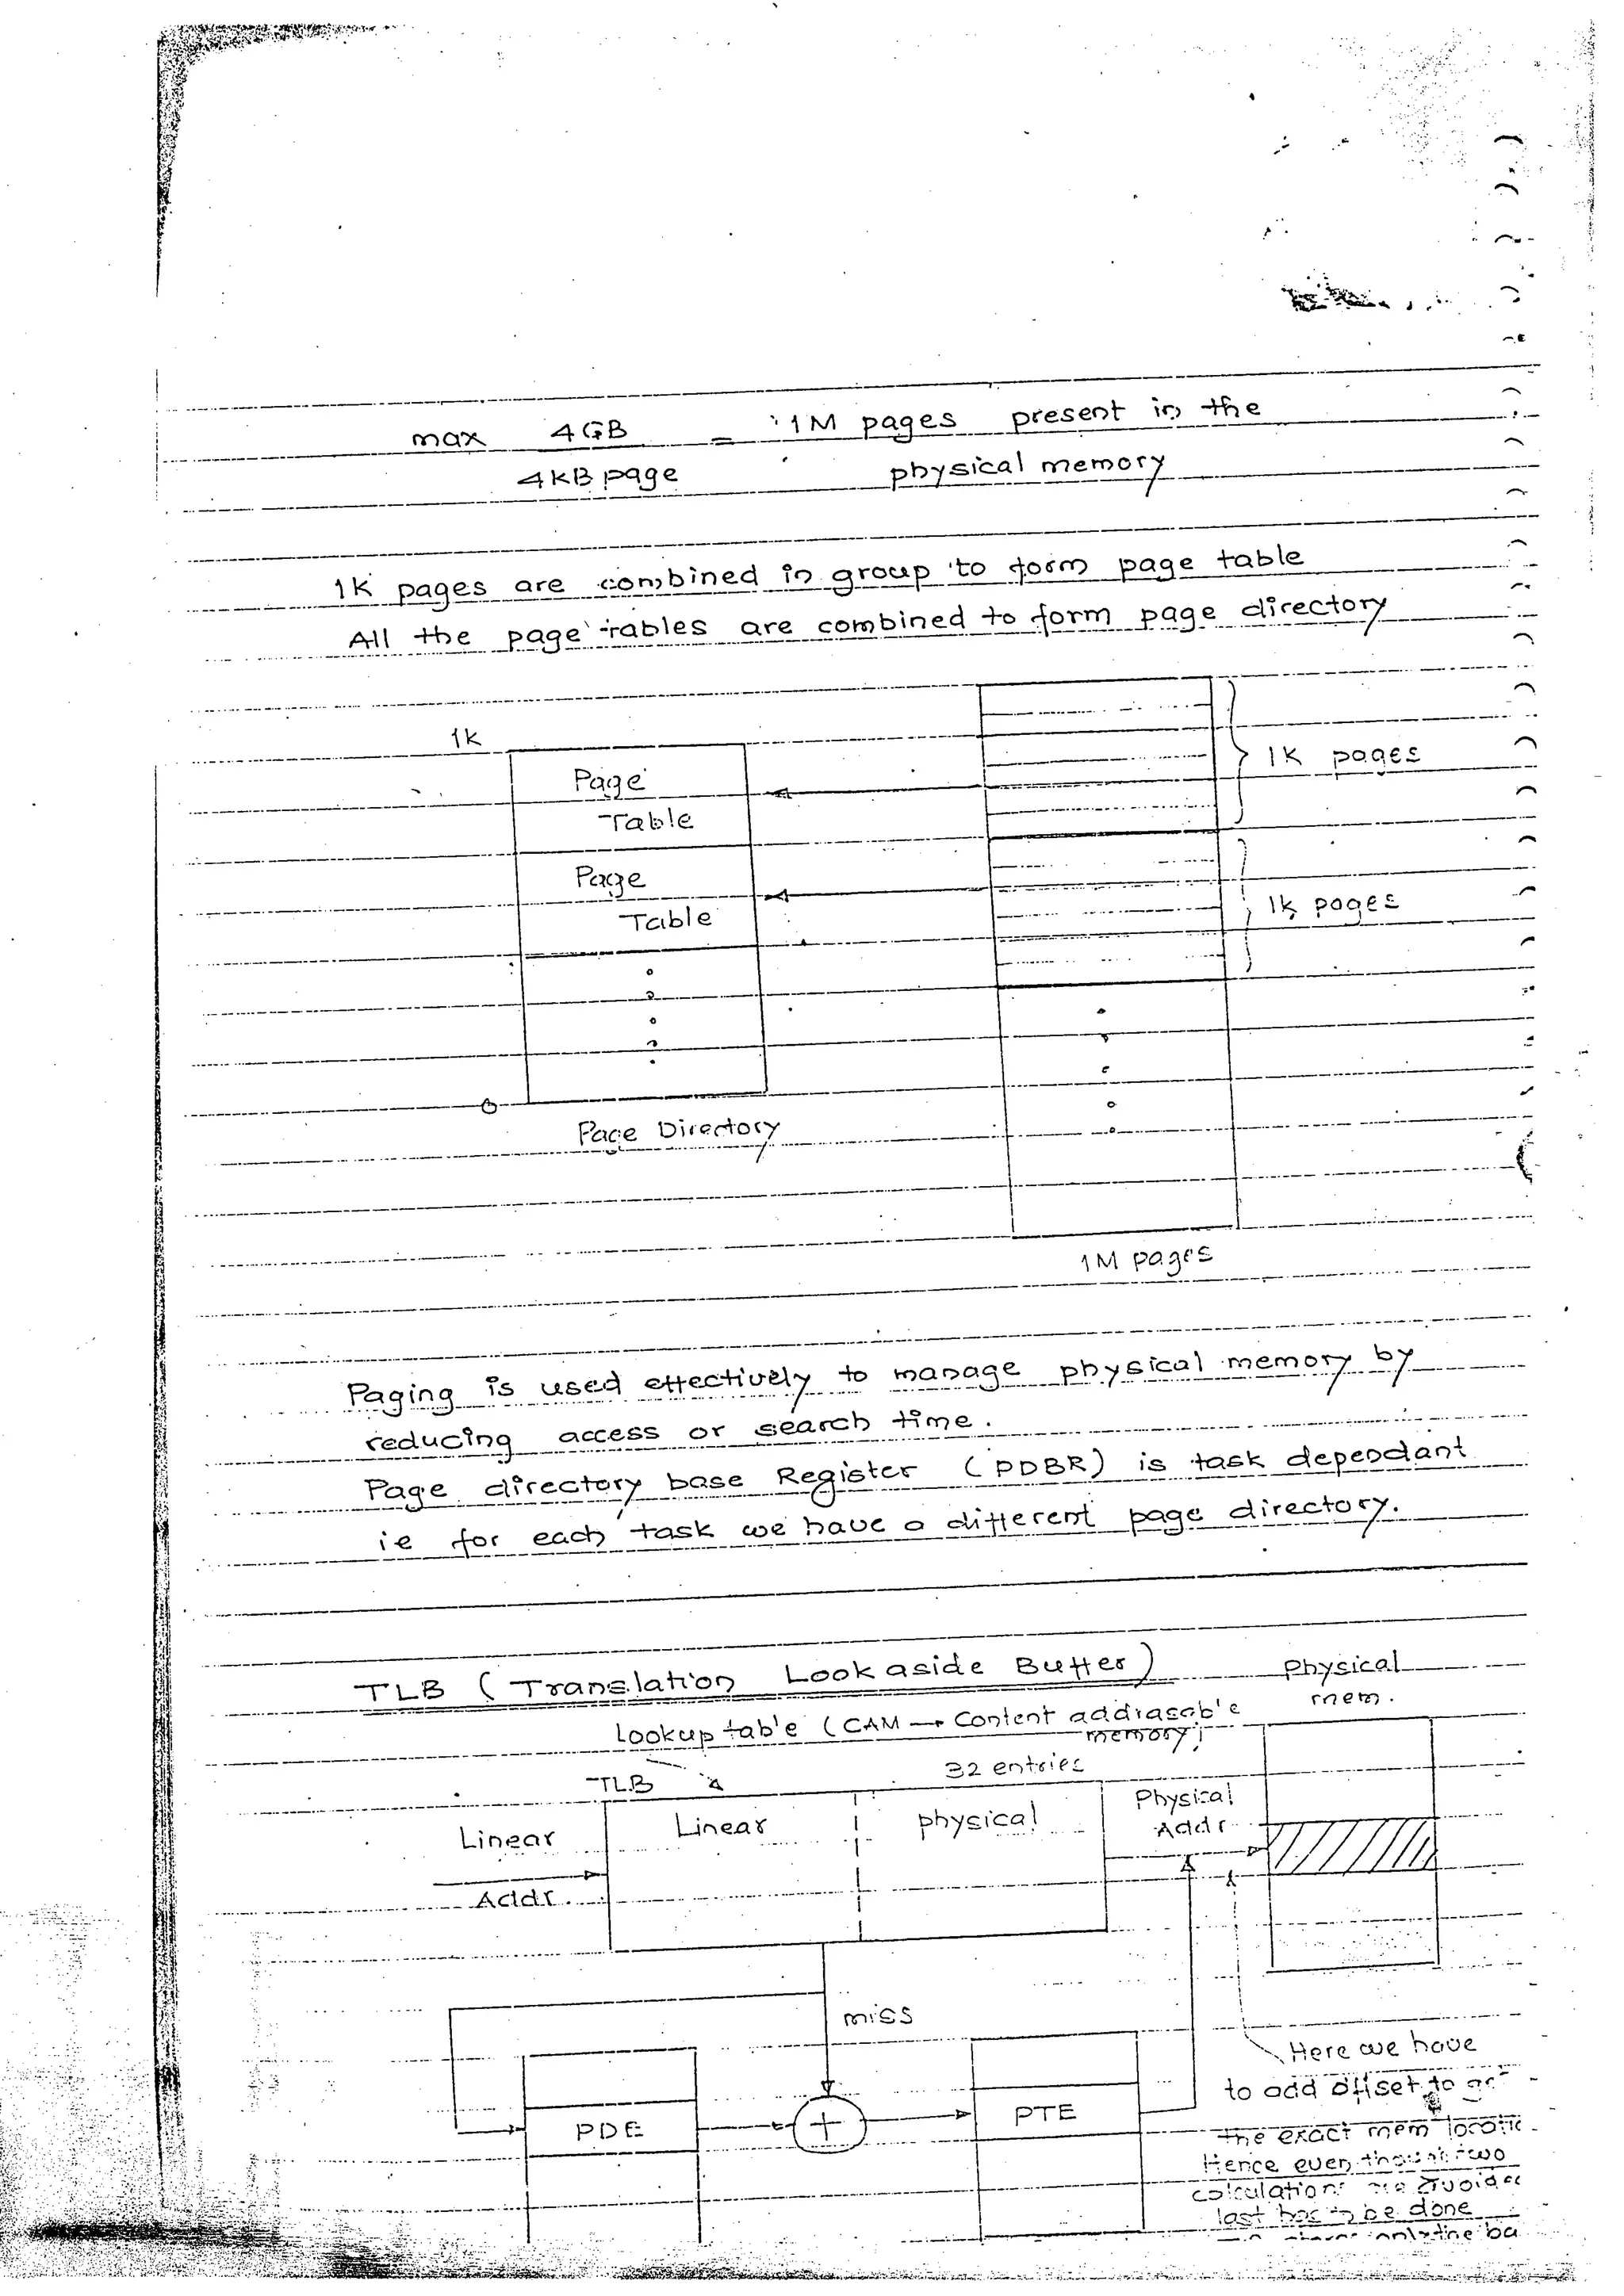 max 4GB = 1M pages present in the
4kB page physical memory
1K pages are combined in group to form page table
All the page tables are combined to form page directory
1K
Page
Table
1K pages
Page
Table
1K pages
0
Page Directory
1M pages
Paging is used effectively to manage physical memory by
reducing access or search time.
Page directory base Register (PDBR) is task dependant
ie for each task we have a different page directory.
TLB (Translation Lookaside Buffer)
Physical
mem.
Lookup table (CAM → Content addrasable
memory)
TLB
32 entries
Linear
Addr.
Linear
physical
Physical
Addr
miss
PDE
+
PTE
Here we have
to add offset to
the exact mem
Hence even though two
calculations are
last has to be done
only the ba